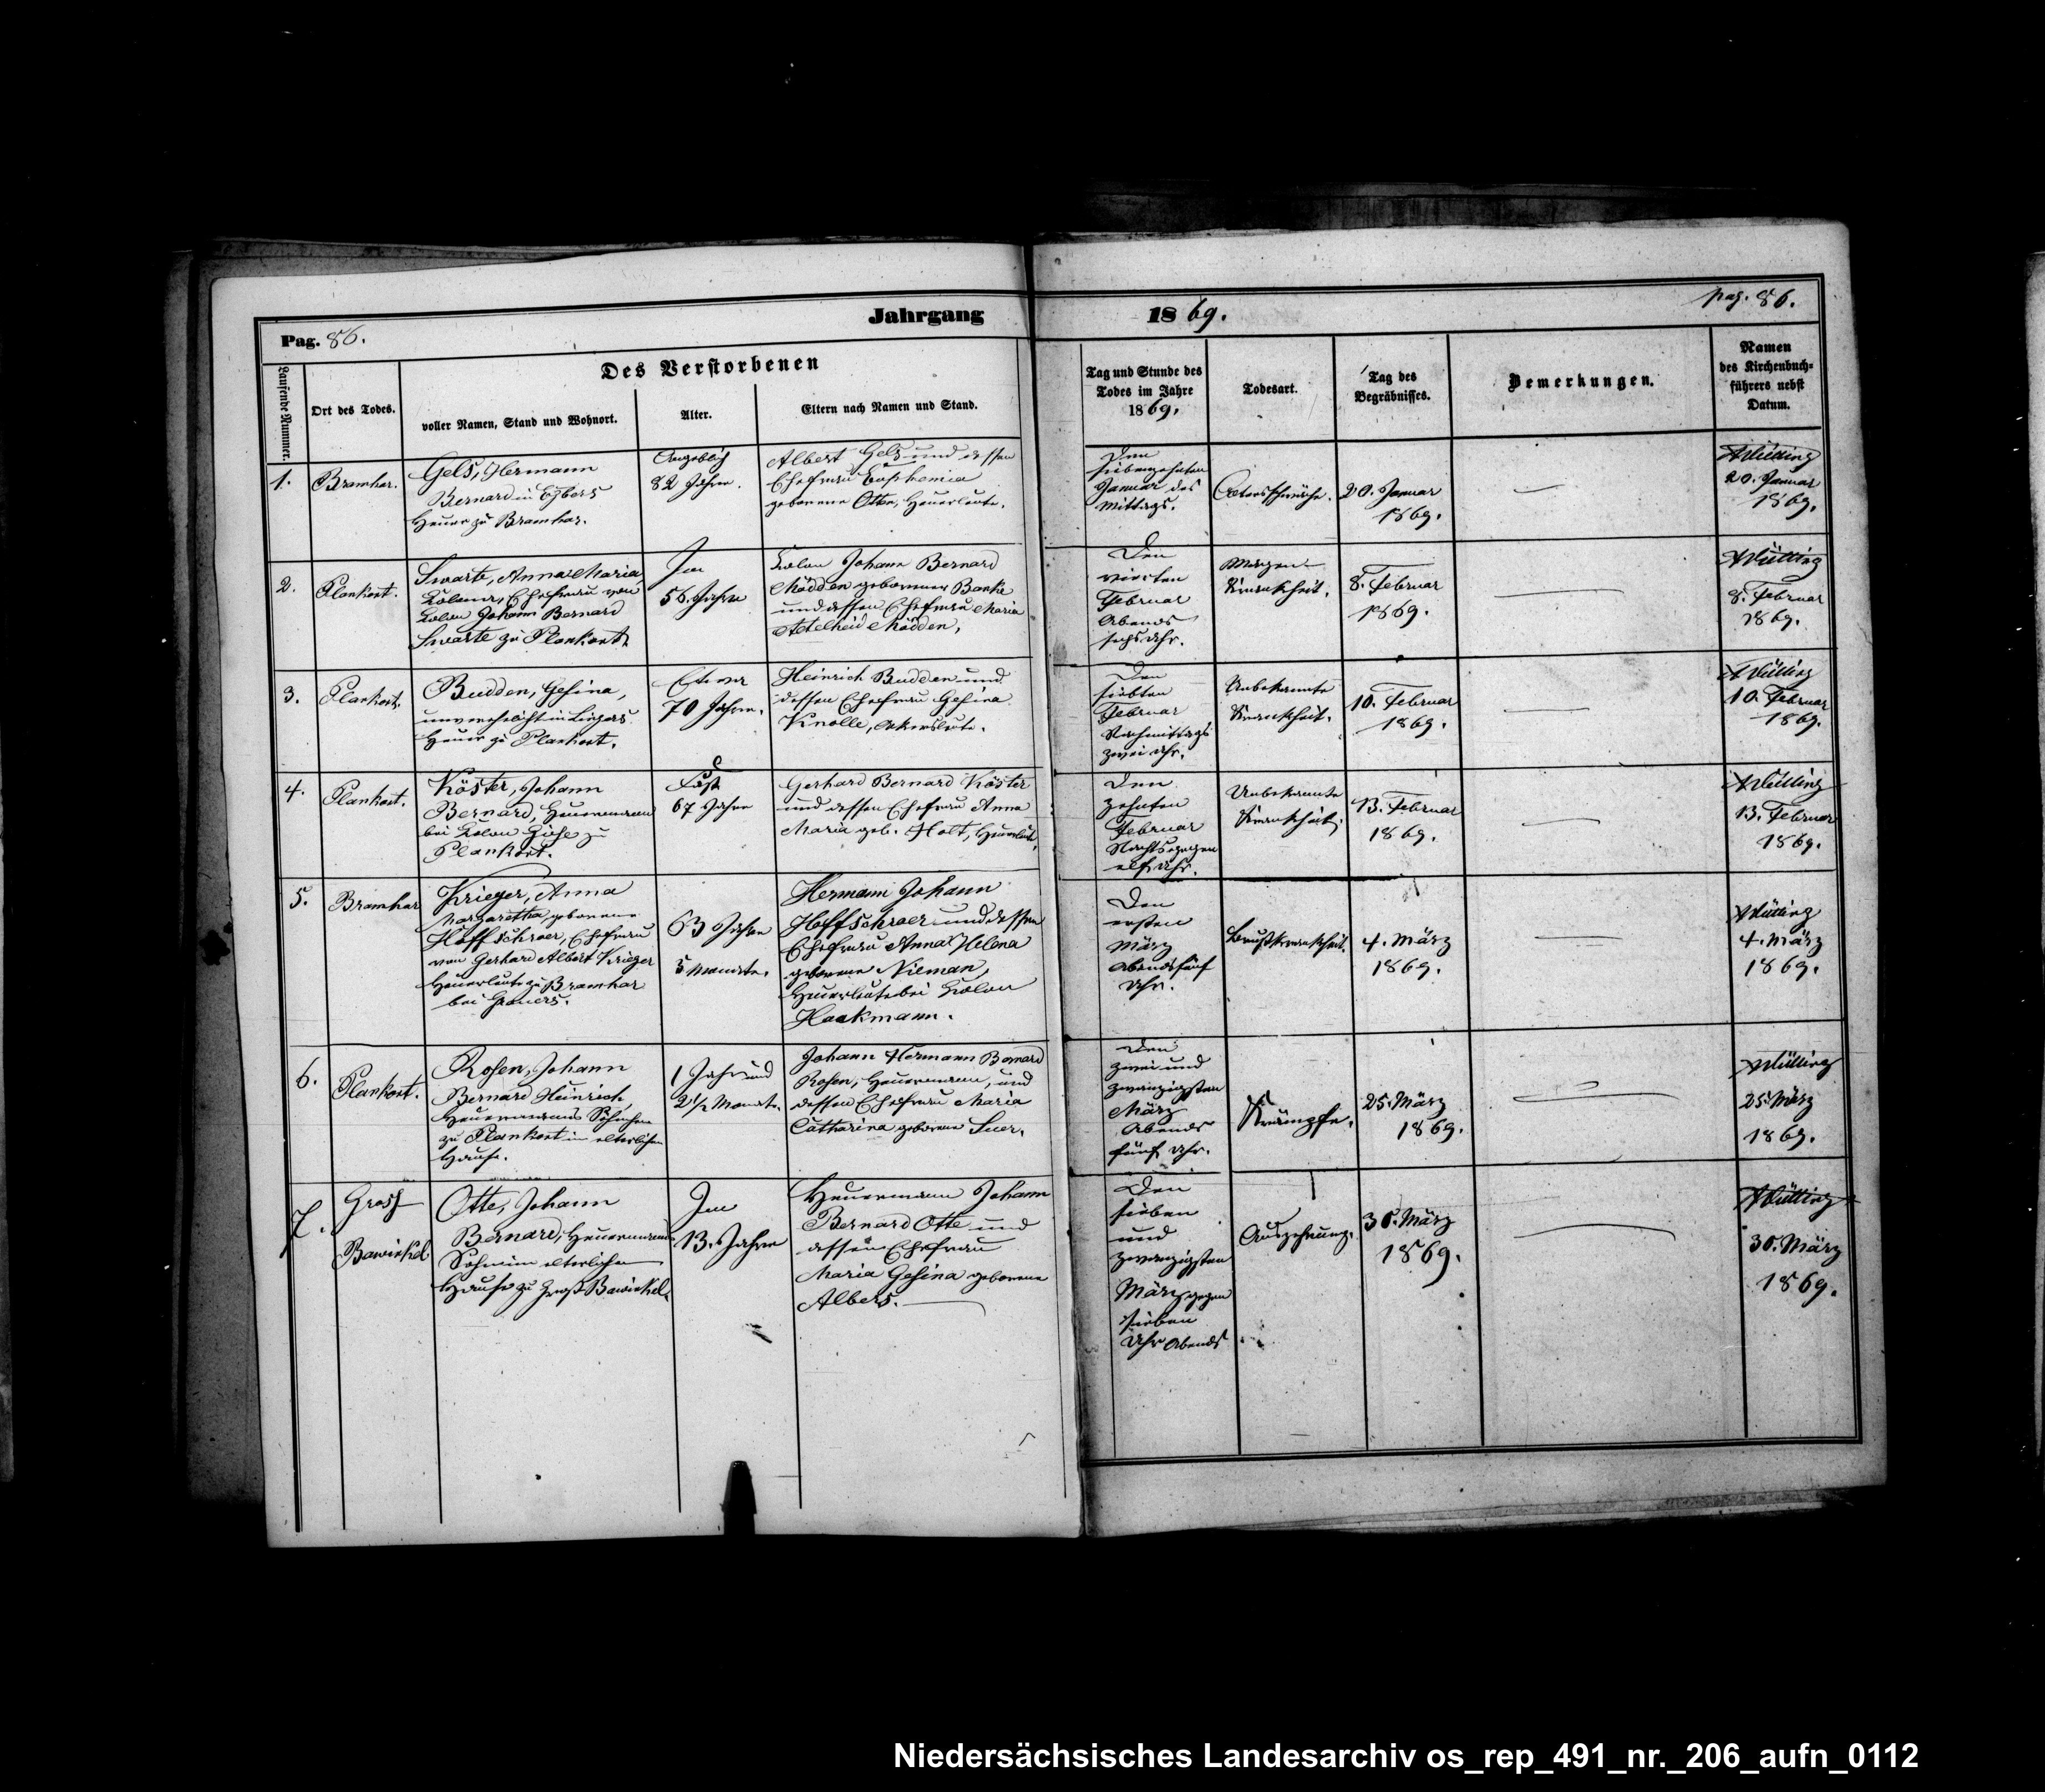 Jahrgang 1869.
Pag. 86.
pag. 86.
Laufende Nummer.
Ort des Todes.
Des Verstorbenen
voller Namen, Stand und Wohnort.
Alter.
Eltern nach Namen und Stand.
Tag und Stunde des
Todes im Jahre
1869.
Todesart.
Tag des
Begräbnisses.
Bemerkungen.
Namen
des Kirchenbuch-
führers nebst
Datum.
1.
Bramhar.
Gels, Hermann
Bernard in Egbers
Heuer zu Bramhar.
Angeblich
82 Jahre.
Albert Gels und dessen
Ehefrau Euphemia
geborene Otte, Heuerleute.
Den
siebenzehnten
Januar des
Mittags.
Altersschwäche.
20. Januar
1869.
20. Januar
1869.
2.
Plankort.
Swarte, Anna Maria
Colona, Ehefrau von
Colon Johann Bernard
Swarte zu Plankort.
Im
56. Jahre
Colon Johann Bernard
Mödden geborener Banke
und dessen Ehefrau Maria
Adelheid Mödden,
Den
vierten
Februar
Abends
sechs Uhr.
Magen-
Krankheit.
8. Februar
1869.
8. Februar
1869.
3.
Plankort.
Budden, Gesina,
unverehelicht in
Heuer zu Plankort.
Etwa
70 Jahre.
Heinrich Budden und
dessen Ehefrau Gesina
Knolle, Ackersleute.
Den
siebten
Februar
Nachmittags
zwei Uhr.
Unbekannte
Krankheit.
10. Februar
1869.
10. Februar
1869.
4.
Plankort.
Köster, Johann
Bernard, Heuermann
bei Colon zu
Plankort.
Fast
67 Jahre
Gerhard Bernard Köster
und dessen Ehefrau Anna
Maria geb. Holt, Heuerleut.
Den
zehnten
Februar
Nachts gegen
elf Uhr.
Unbekannte
Krankheit.
13. Februar
1869.
13. Februar
1869.
5.
Bramhar
Krieger, Anna
Margaretha geborene
Hoffschroer, Ehefrau
von Gerhard Albert Krieger
Heuerleute zu Bramhar
bei
63 Jahre
5 Monate.
Hermann Johann
Hoffschroer und dessen
Ehefrau Anna Helena
geborene Nieman,
Heuerleute bei Colon
Haakmann.
Den
ersten
März
Abends fünf
Uhr.
Brustkrankheit.
4. März
1869.
4. März
1869.
6.
Plankort.
Rosen, Johann
Bernard Heinrich,
Heuermanns Söhnchen
zu Plankort im elterlichen
Hause.
1 Jahr und
2 1/2 Monate.
Johann Hermann Bernard
Rosen, Heuermann, und
dessen Ehefrau Maria
Catharina geborene Suer.
Den
zwei und
zwanzigsten
März
Abends
fünf Uhr.
Krämpfe.
25. März
1869.
25. März
1869.
7.
Gross
Bawinkel
Otte, Johann
Bernard, Heuermanns
Sohn im elterlichen
Hause zu Gross Bawinkel.
Im
13. Jahre
Heuermann Johann
Bernard Otte und
dessen Ehefrau
Maria Gesina geborene
Albers.
Den
sieben
und
zwanzigsten
März gegen
sieben
Uhr Abends
Auszehrung.
30. März
1869.
30. März
1869.
Niedersächsisches Landesarchiv os_rep_491_nr._206_aufn_0112